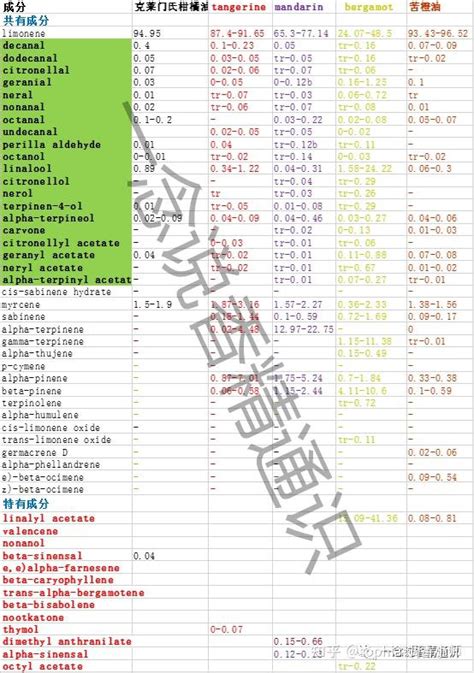 成分 克莱门氏柑橘油 tangerine mandarin bergamot 苦橙油
共有成分
limonene 94.95 87.4-91.65 65.3-77.14 24.07-48.5 93.43-96.52
decanal 0.4 0.1-0.23 0.05 tr-0.16 0.07-0.09
dodecanal 0.05 0.03-0.05 tr-0.05 tr-0.16 tr-0.02
citronellal 0.07 0.02-0.06 tr-0.07 tr-0.06
geranial 0.03 0-0.05 0-0.12b 0.16-1.25 0.1
neral 0.01 tr-0.07 0-0.03 0.06-0.72 tr
nonanal 0.02 tr-0.06 tr-0.07 tr-0.08 0.01
octanal 0.1-0.2 - 0.03-0.22 0.02-0.08 0.05-0.07
undecanal 0.02-0.05 tr-0.05 0-0.02 -
perilla aldehyde 0.01 0.04 tr-0.12b tr-0.11 -
octanol 0-0.01 tr-0.02 tr-0.14 0-0.02 tr-0.03
linalool 0.89 0.34-1.22 0.04-0.31 1.55-24.22 0.06-0.3
citronellol tr-0.04 tr-0.29
nerol tr tr-0.03 tr-0.26 -
terpinen-4-ol 0.01 tr-0.05 0.01-0.08 tr-0.29 -
alpha-terpineol 0.02-0.09 0.04-0.09 0.04-0.46 0.03-0.27 0.04-0.06
carvone - tr-0.02 0-0.13 0.01-0.03
citronellyl acetate 0-0.03 tr-0.01 tr-0.06 -
geranyl acetate 0.04 tr-0.02 tr-0.01 0.11-0.88 0.07-0.08
neryl acetate tr-0.02 tr-0.01 tr-0.67 0.01-0.02
alpha-terpinyl acetat - tr-0.01 0.07-0.27 tr-0.01
cis-sabinene hydrate - -
myrcene 1.5-1.9 1.87-3.16 1.57-2.27 0.36-2.33 1.38-1.56
sabinene 0.18-1.44 0.1-0.59 0.72-1.69 0.09-0.17
alpha-terpinene 0.02-4.48 12.97-22.75 -0 0
gamma-terpinene 1.15-11.38 tr-0.01
alpha-thujene tr-0.15-0.49 -
p-cymene - -
alpha-pinene 0.87-7.01 1.75-5.24 0.7-1.84 0.33-0.38
beta-pinene 0.06-0.58 1.15-2.44 4.11-10.6 0.1-0.59
terpinolene tr-0.72 -
alpha-humulene - -
cis-limonene oxide - -
trans-limonene oxide tr-0.11 -
germacrene D 0.02-0.06
alpha-phellandrene -
e)-beta-ocimene - 0.09-0.54
z)-beta-ocimene - -
特有成分
linalyl acetate 09-41.36 0.08-0.81
valencene
nonanol
beta-sinensal 0.04
e,e)alpha-farnesene
beta-caryophyllene
trans-alpha-bergamotene
beta-bisabolene
nootkatone
thymol 0-0.07
dimethyl anthranilate 0.15-0.66
alpha-sinensal 0.12-0.23
octyl acetate tr-0.22
一念说香精通识
知乎